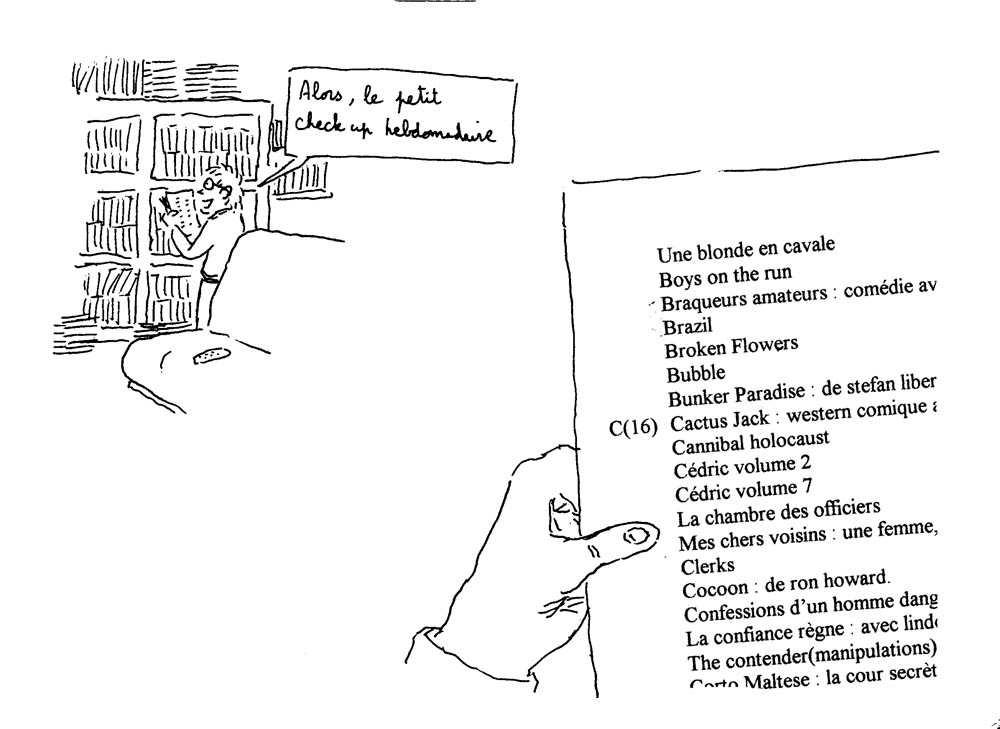 Alors, le petit
check up hebdomadaire
Une blonde en cavale
Boys on the run
Braqueurs amateurs : comédie av
Brazil
Broken Flowers
Bubble
Bunker Paradise : de stefan liber
C(16) Cactus Jack : western comique a
Cannibal holocaust
Cédric volume 2
Cédric volume 7
La chambre des officiers
Mes chers voisins : une femme,
Clerks
Cocoon : de ron howard.
Confessions d'un homme dang
La confiance règne : avec lind
The contender(manipulations)
Corto Maltese : la cour secrèt